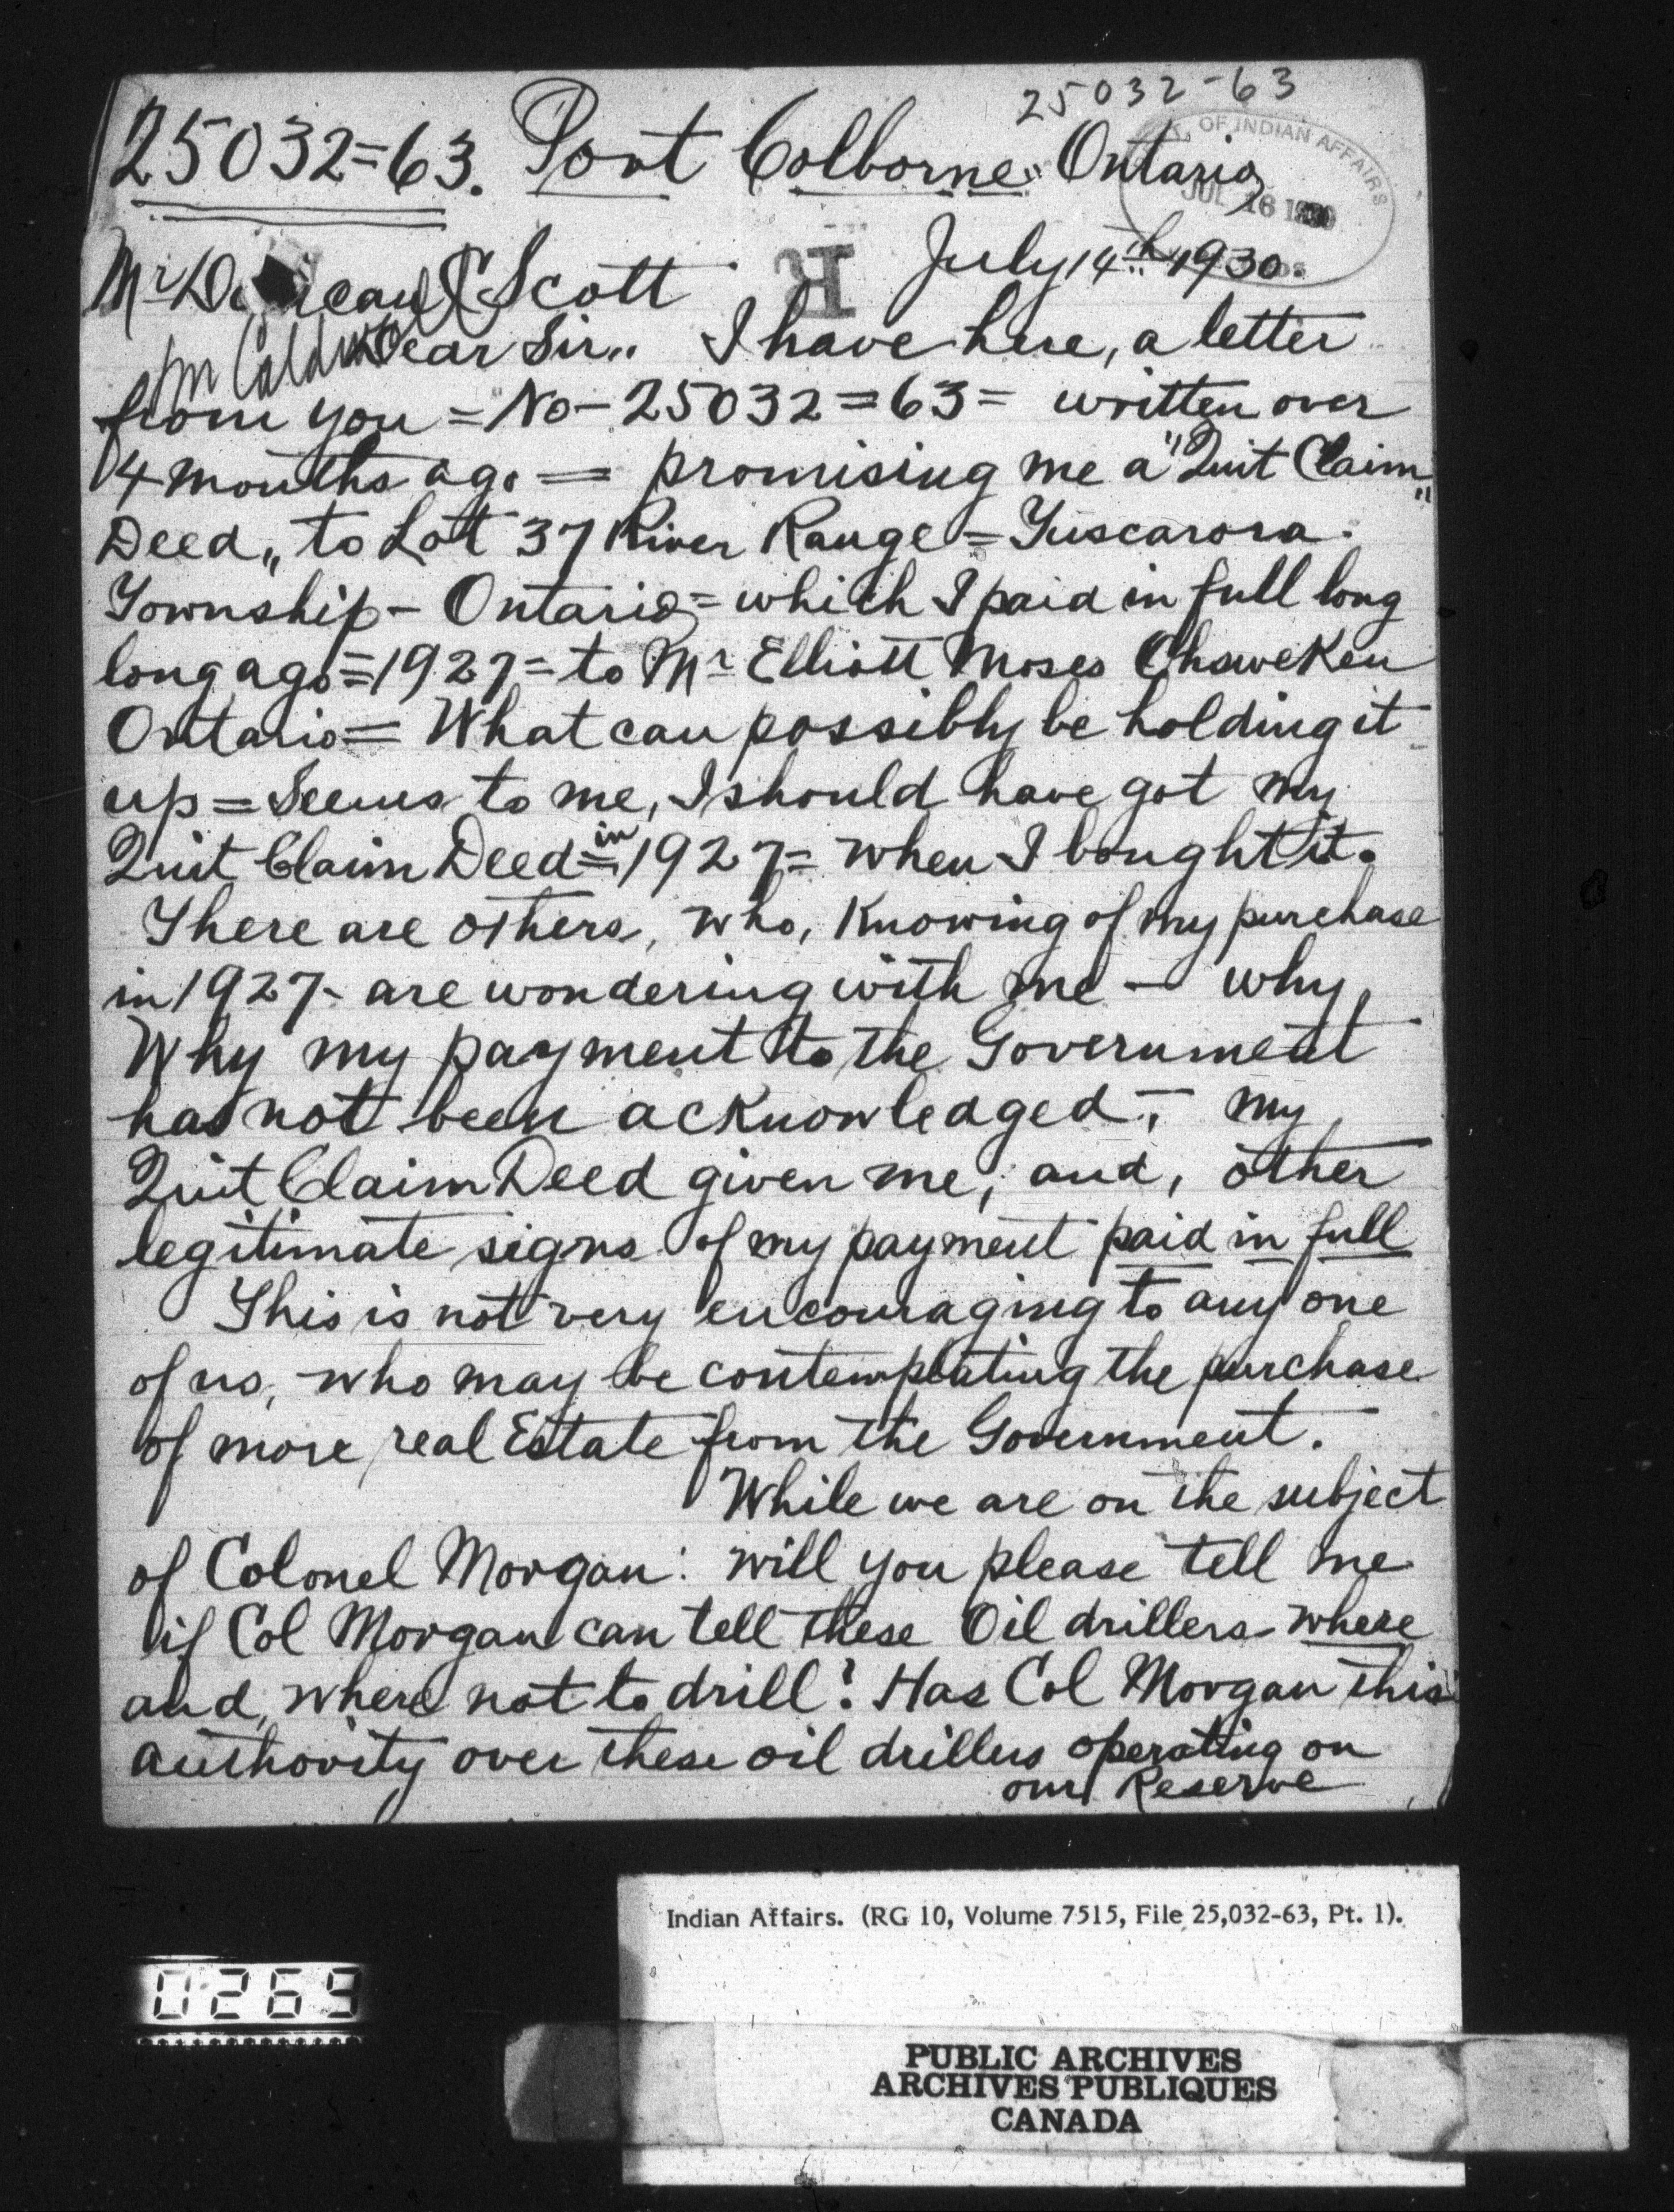 25032-63
25032=63. Port Colborne Ontario
OF INDIAN AFFAIRS
JUL 16 1930
July 14th 1930.
R
Mr Duncan C Scott
Mr Caldwell
Dear Sir.. I have here, a letter
from you = No - 25032 = 63 = written over
4 months ago = promising me a "Quit Claim
Deed„ to Lot 37 River Range = Tuscarora.
Township - Ontario = which I paid in full long
long ago = 1927 = to Mr Elliott Moses Ohsweken
Ontario = What can possibly be holding it
up = Seems to me, I should have got my
Quit Claim Deed = in 1927 = when I bought it.
There are others, who, knowing of my purchase
in 1927 - are wondering with me - why,
Why my payment to the Government
has not been acknowledged, - my
Quit Claim Deed given me, and, other
legitimate signs of my payment paid in full
This is not very encouraging to any one
of us, who may be contemplating the purchase
of more real Estate from the Government.
While we are on the subject
of Colonel Morgan: will you please tell me
if Col Morgan can tell these Oil drillers where
and, where not to drill? Has Col Morgan this
authority over these oil drillers operating on
our Reserve
Indian Affairs. (RG 10, Volume 7515, File 25,032-63, Pt. 1).
0269
PUBLIC ARCHIVES
ARCHIVES PUBLIQUES
CANADA